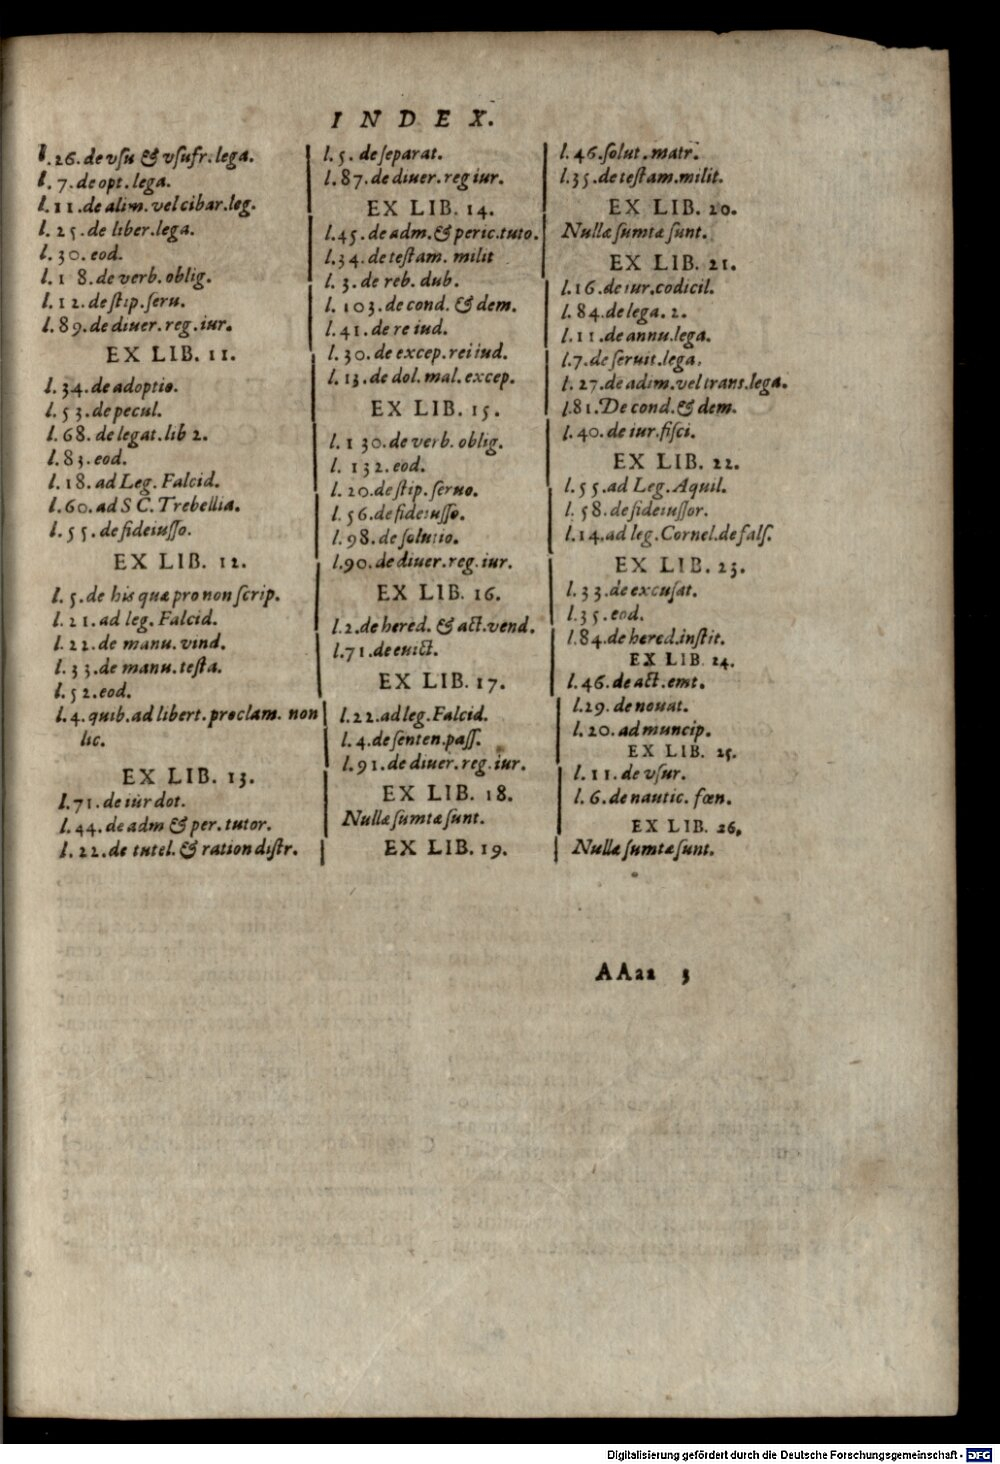 INDEX.
l.26. de vſu & vſufr. lega.
l. 7. de opt. lega.
l. 11. de alim. vel cibar. leg.
l. 25. de liber. lega.
l. 30. eod.
l. 1 8. de verb. oblig.
l. 12. de ſtip. ſeru.
l. 89. de diuer. reg. iur.
EX LIB. 11.
l. 34. de adoptio.
l. 53. de pecul.
l. 68. de legat. lib 2.
l. 83. eod.
l. 18. ad Leg. Falcid.
l. 60. ad S C. Trebellia.
l. 55. de fideiuſſo.
EX LIB. 12.
l. 5. de his quæ pro non ſcrip.
l. 21. ad leg. Falcid.
l. 22. de manu. vind.
l. 33. de manu. teſta.
l. 52. eod.
l. 4. quib. ad libert. proclam. non
lic.
EX LIB. 13.
l. 71. de iur dot.
l. 44. de adm & per. tutor.
l. 22. de tutel. & ration diſtr.
l. 5. de ſeparat.
l. 87. de diuer. reg iur.
EX LIB. 14.
l. 45. de adm. & peric. tuto.
l. 34. de teſtam. milit
l. 3. de reb. dub.
l. 103. de cond. & dem.
l. 41. de re iud.
l. 30. de excep. rei iud.
l. 13. de dol. mal. excep.
EX LIB. 15.
l. 1 30. de verb. oblig.
l. 132. eod.
l. 20. de ſtip. ſeruo.
l. 56. de fideiuſſo.
l. 98. de ſolutio.
l. 90. de diuer. reg. iur.
EX LIB. 16.
l. 2. de hered. & act. vend.
l. 71. de euict.
EX LIB. 17.
l. 22. ad leg. Falcid.
l. 4. de ſenten. paſſ.
l. 91. de diuer. reg. iur.
EX LIB. 18.
Nullæ ſumtæ ſunt.
EX LIB. 19.
l. 46. ſolut. matr.
l. 35. de teſtam. milit.
EX LIB. 20.
Nullæ ſumtæ ſunt.
EX LIB. 21.
l. 16. de iur. codicil.
l. 84. de lega. 2.
l. 11. de annu. lega.
l. 7. de ſeruit. lega.
l. 27. de adim. vel trans. lega.
l. 81. De cond. & dem.
l. 40. de iur. fiſci.
EX LIB. 22.
l. 55. ad Leg. Aquil.
l. 58. de fideiuſſor.
l. 14. ad leg. Cornel. de falſ.
EX LIB. 23.
l. 33. de excuſat.
l. 35. eod.
l. 84. de hered. inſtit.
EX LIB. 24.
l. 46. de act. emt.
l. 29. de nouat.
l. 20. ad muncip.
EX LIB. 25.
l. 11. de vſur.
l. 6. de nautic. fœn.
EX LIB. 26.
Nullæ ſumtæ ſunt.
AAaa 3
Digitalisierung gefördert durch die Deutsche Forschungsgemeinschaft - DFG